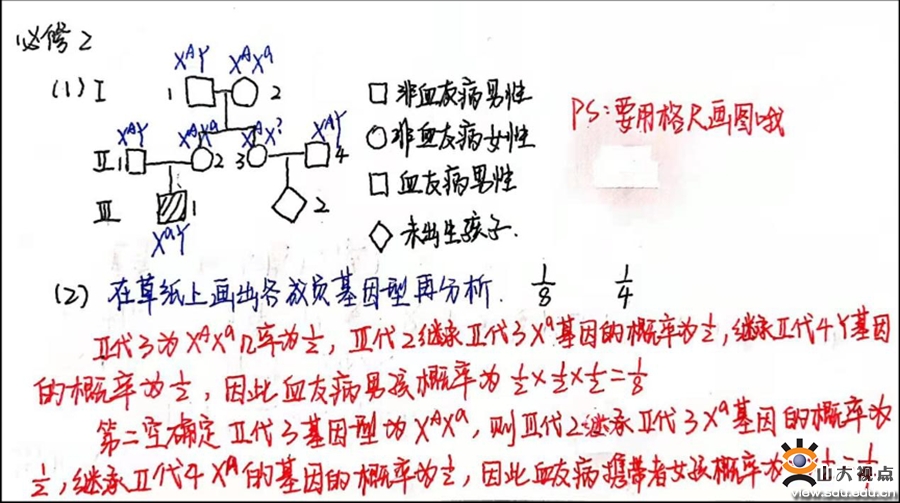 必修2
X^AY X^AX^a
(1) I 1 2 □非血友病男性
PS:要用格尺画图哦
X^AY X^AX^a X^AX^? X^AY ○非血友病女性
Ⅱ 1 2 3 4
□血友病男性
Ⅲ 1 2
◇未出生孩子.
X^aY
(2) 在草纸上画出各成员基因型再分析. 1/8 1/4
Ⅱ代3为X^AX^a几率为1/2, Ⅲ代2继承Ⅱ代3X^a基因的概率为1/2,继承Ⅱ代4Y基因
的概率为1/2, 因此血友病男孩概率为1/2×1/2×1/2=1/8
第二空确定Ⅱ代3基因型为X^AX^a, 则Ⅲ代2继承Ⅱ代3X^a基因的概率为
1/2,继承Ⅱ代4X^A的基因的概率为1/2, 因此血友病携带者女孩概率为
山大视点
view.sdu.edu.cn